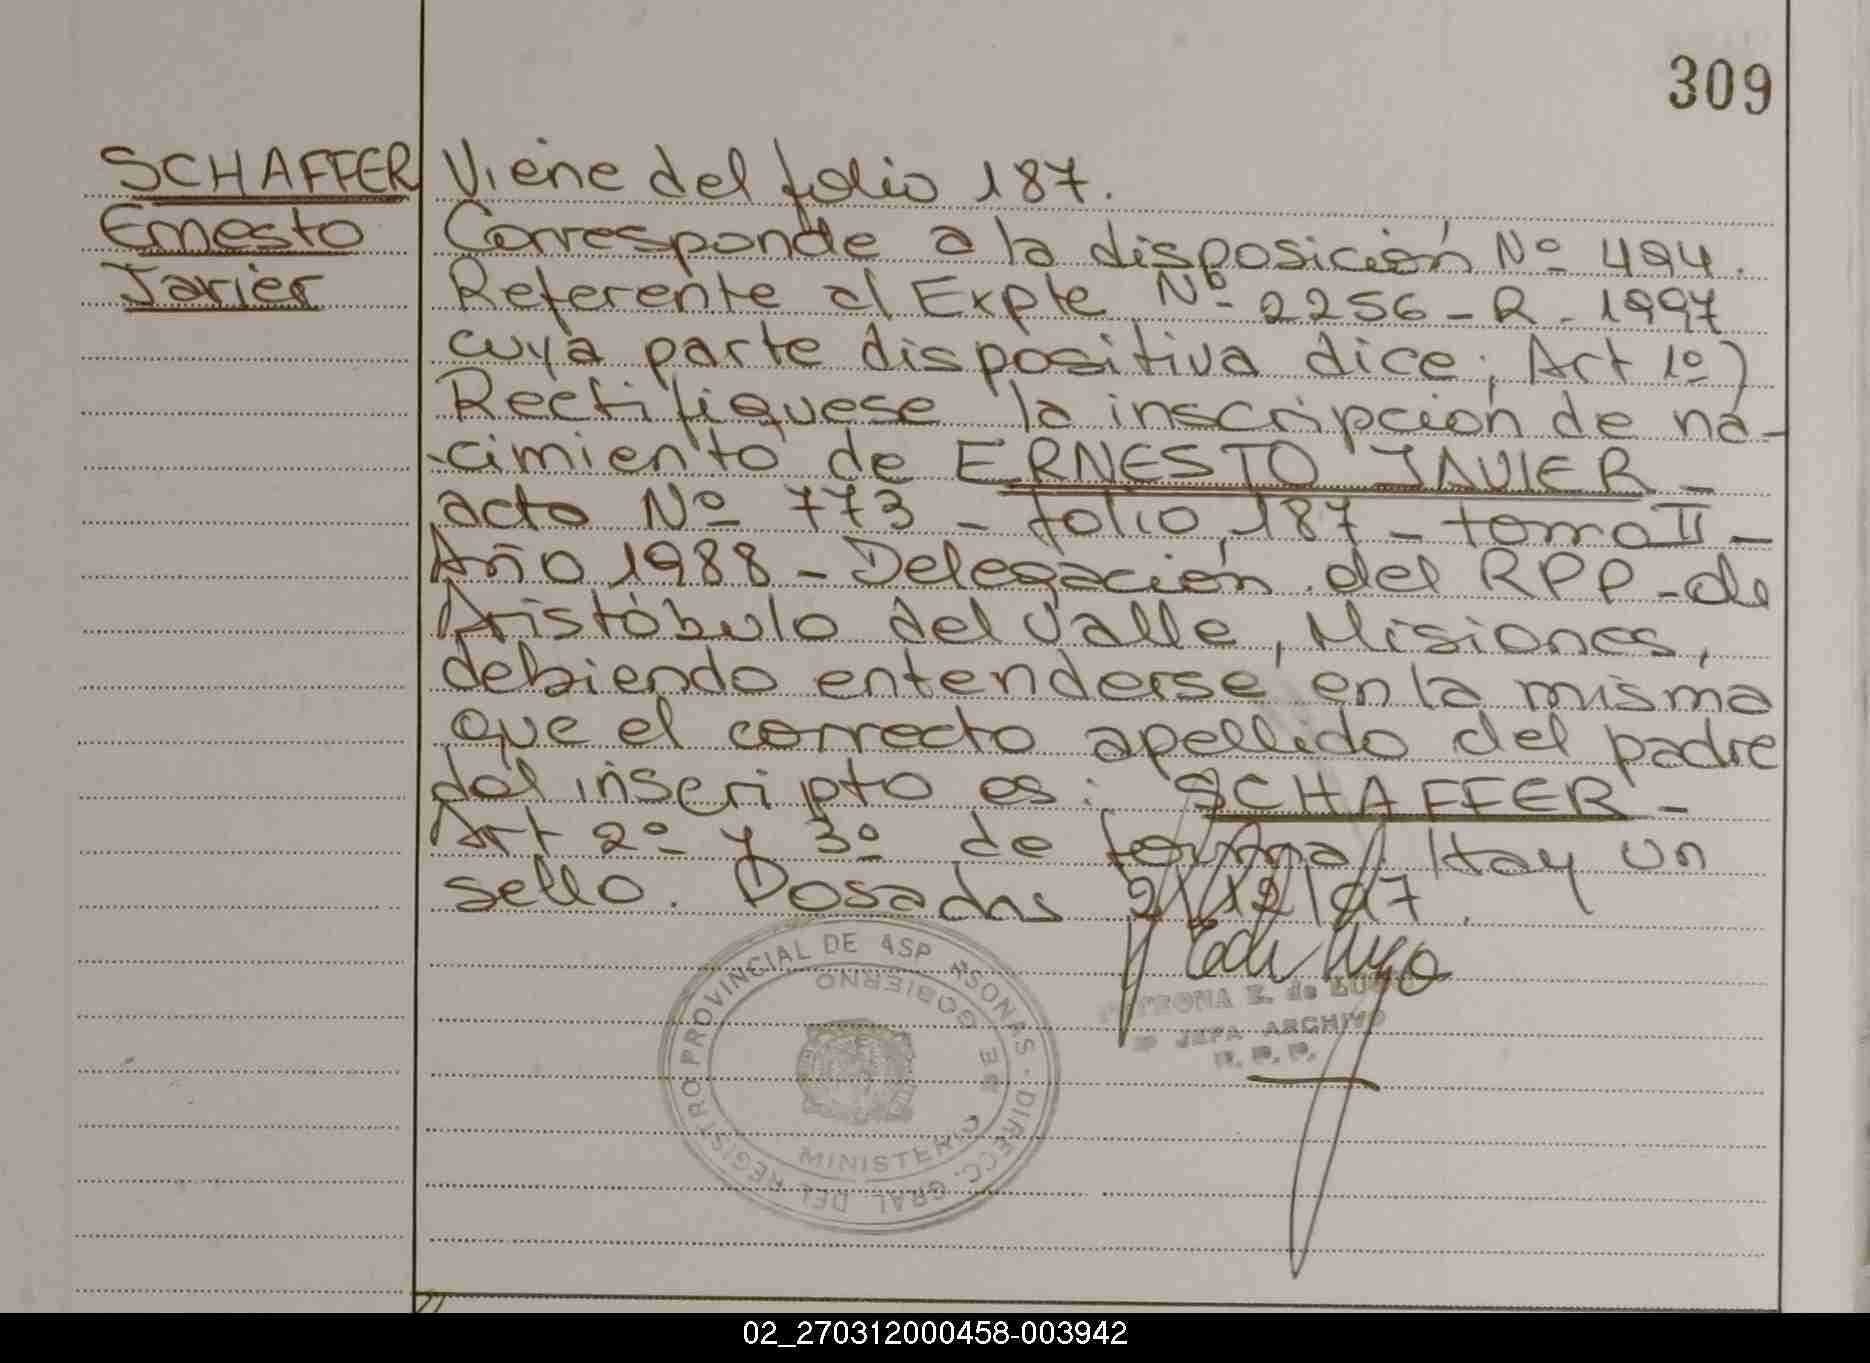 309
SCHAFFER
Ernesto
Javier
Viene del folio 187.
Corresponde a la disposición Nº 494.
Referente al Expte Nº 2256 - R - 1997
cuya parte dispositiva dice; Art 1º)
Rectifiquese la inscripción de na-
-cimiento de ERNESTO JAVIER -
acta Nº 773 - folio 187 - tomo II -
Año 1988 - Delegación del RPP - de
Aristóbulo del Valle, Misiones,
debiendo entenderse en la misma
que el correcto apellido del padre
del inscripto es: SCHAFFER -
Art 2º y 3º de forma. Hay un
sello. Posadas 2/12/97.
REGISTRO PROVINCIAL DE PERSONAS · DIRECC. GRAL DEL
MINISTERIO DE GOBIERNO
E. de
JEFA ARCHIVO
R. P. P.
02_270312000458-003942